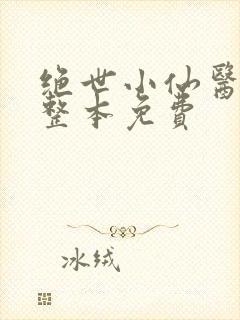 绝世小仙醫
整本免費
冰绒